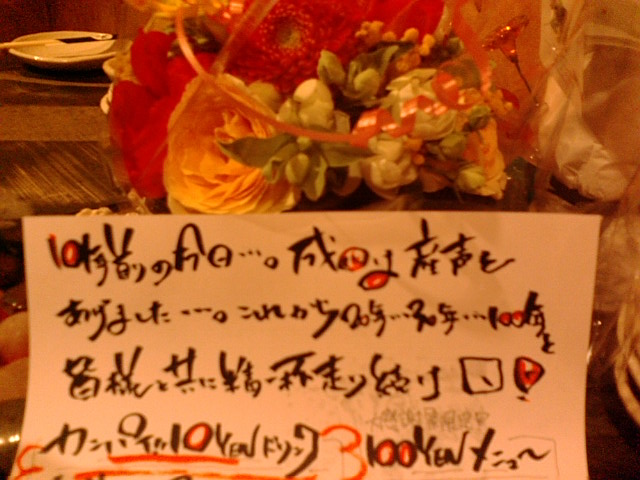 10年前の今日…。成田は産声を
あげました…。これから20年…30年…100年と
皆様と共に精一杯走り続け
カンパイ!!10YENドリンク 100YENメニュー